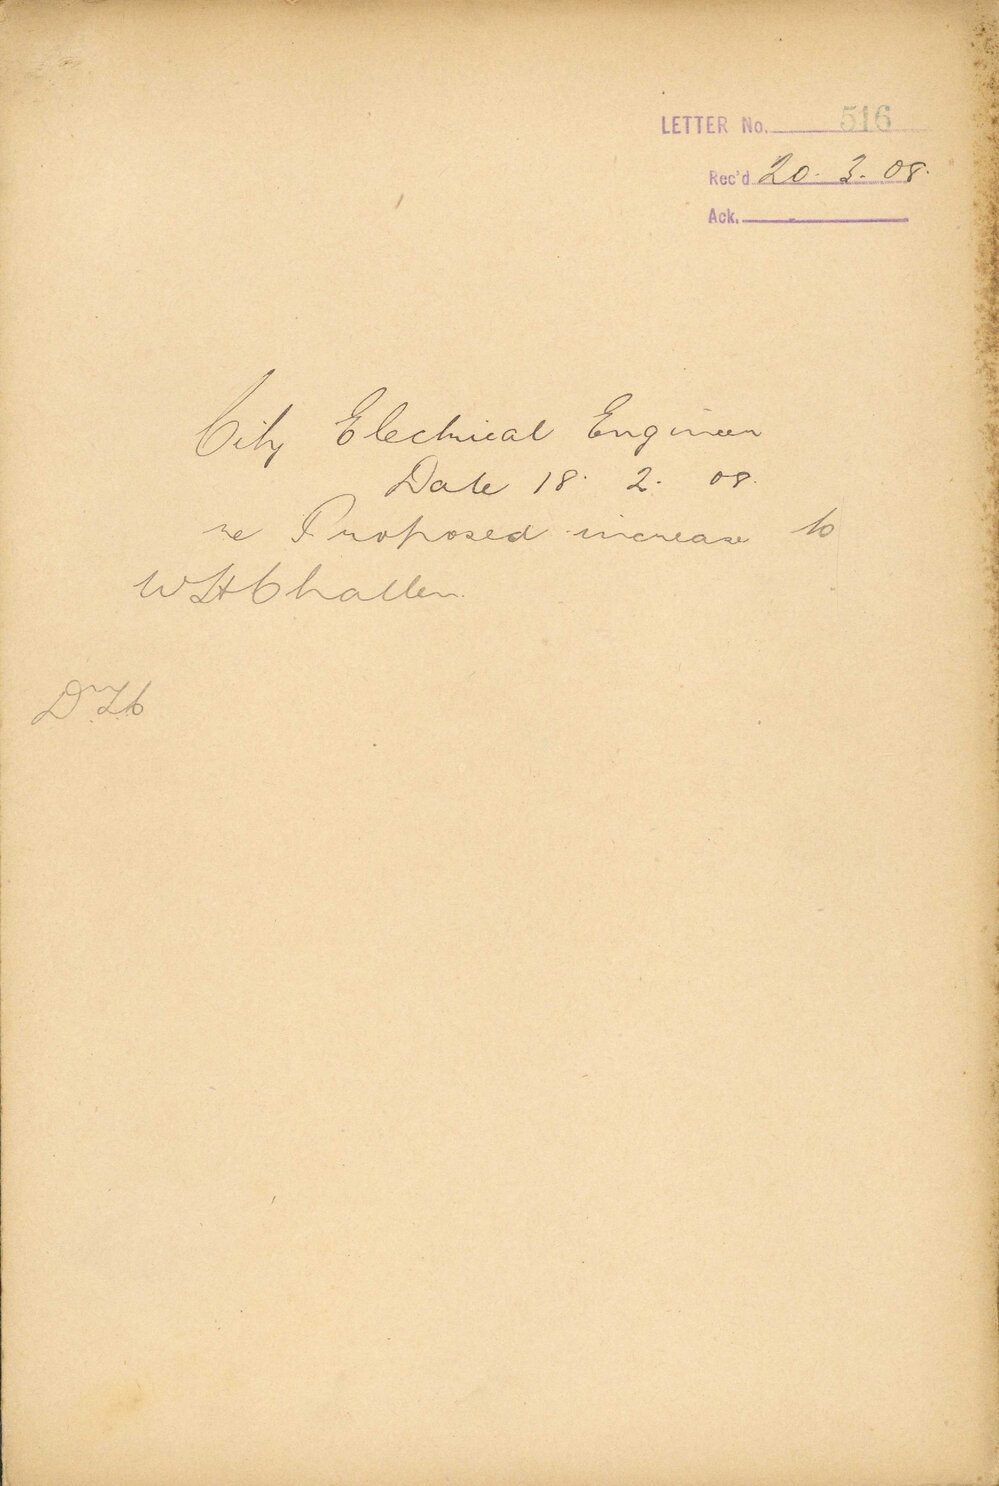 LETTER No. 516
Rec'd 20. 3. 08.
Ack.
City Electrical Engineer
Date 18. 2. 08.
re Proposed increase to
W H Challen.